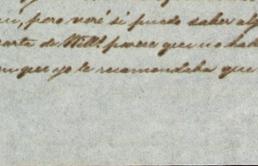 pero veré si puedo saber alg
carta de Will.ˢ parece que no hab
que yo le recomendaba que